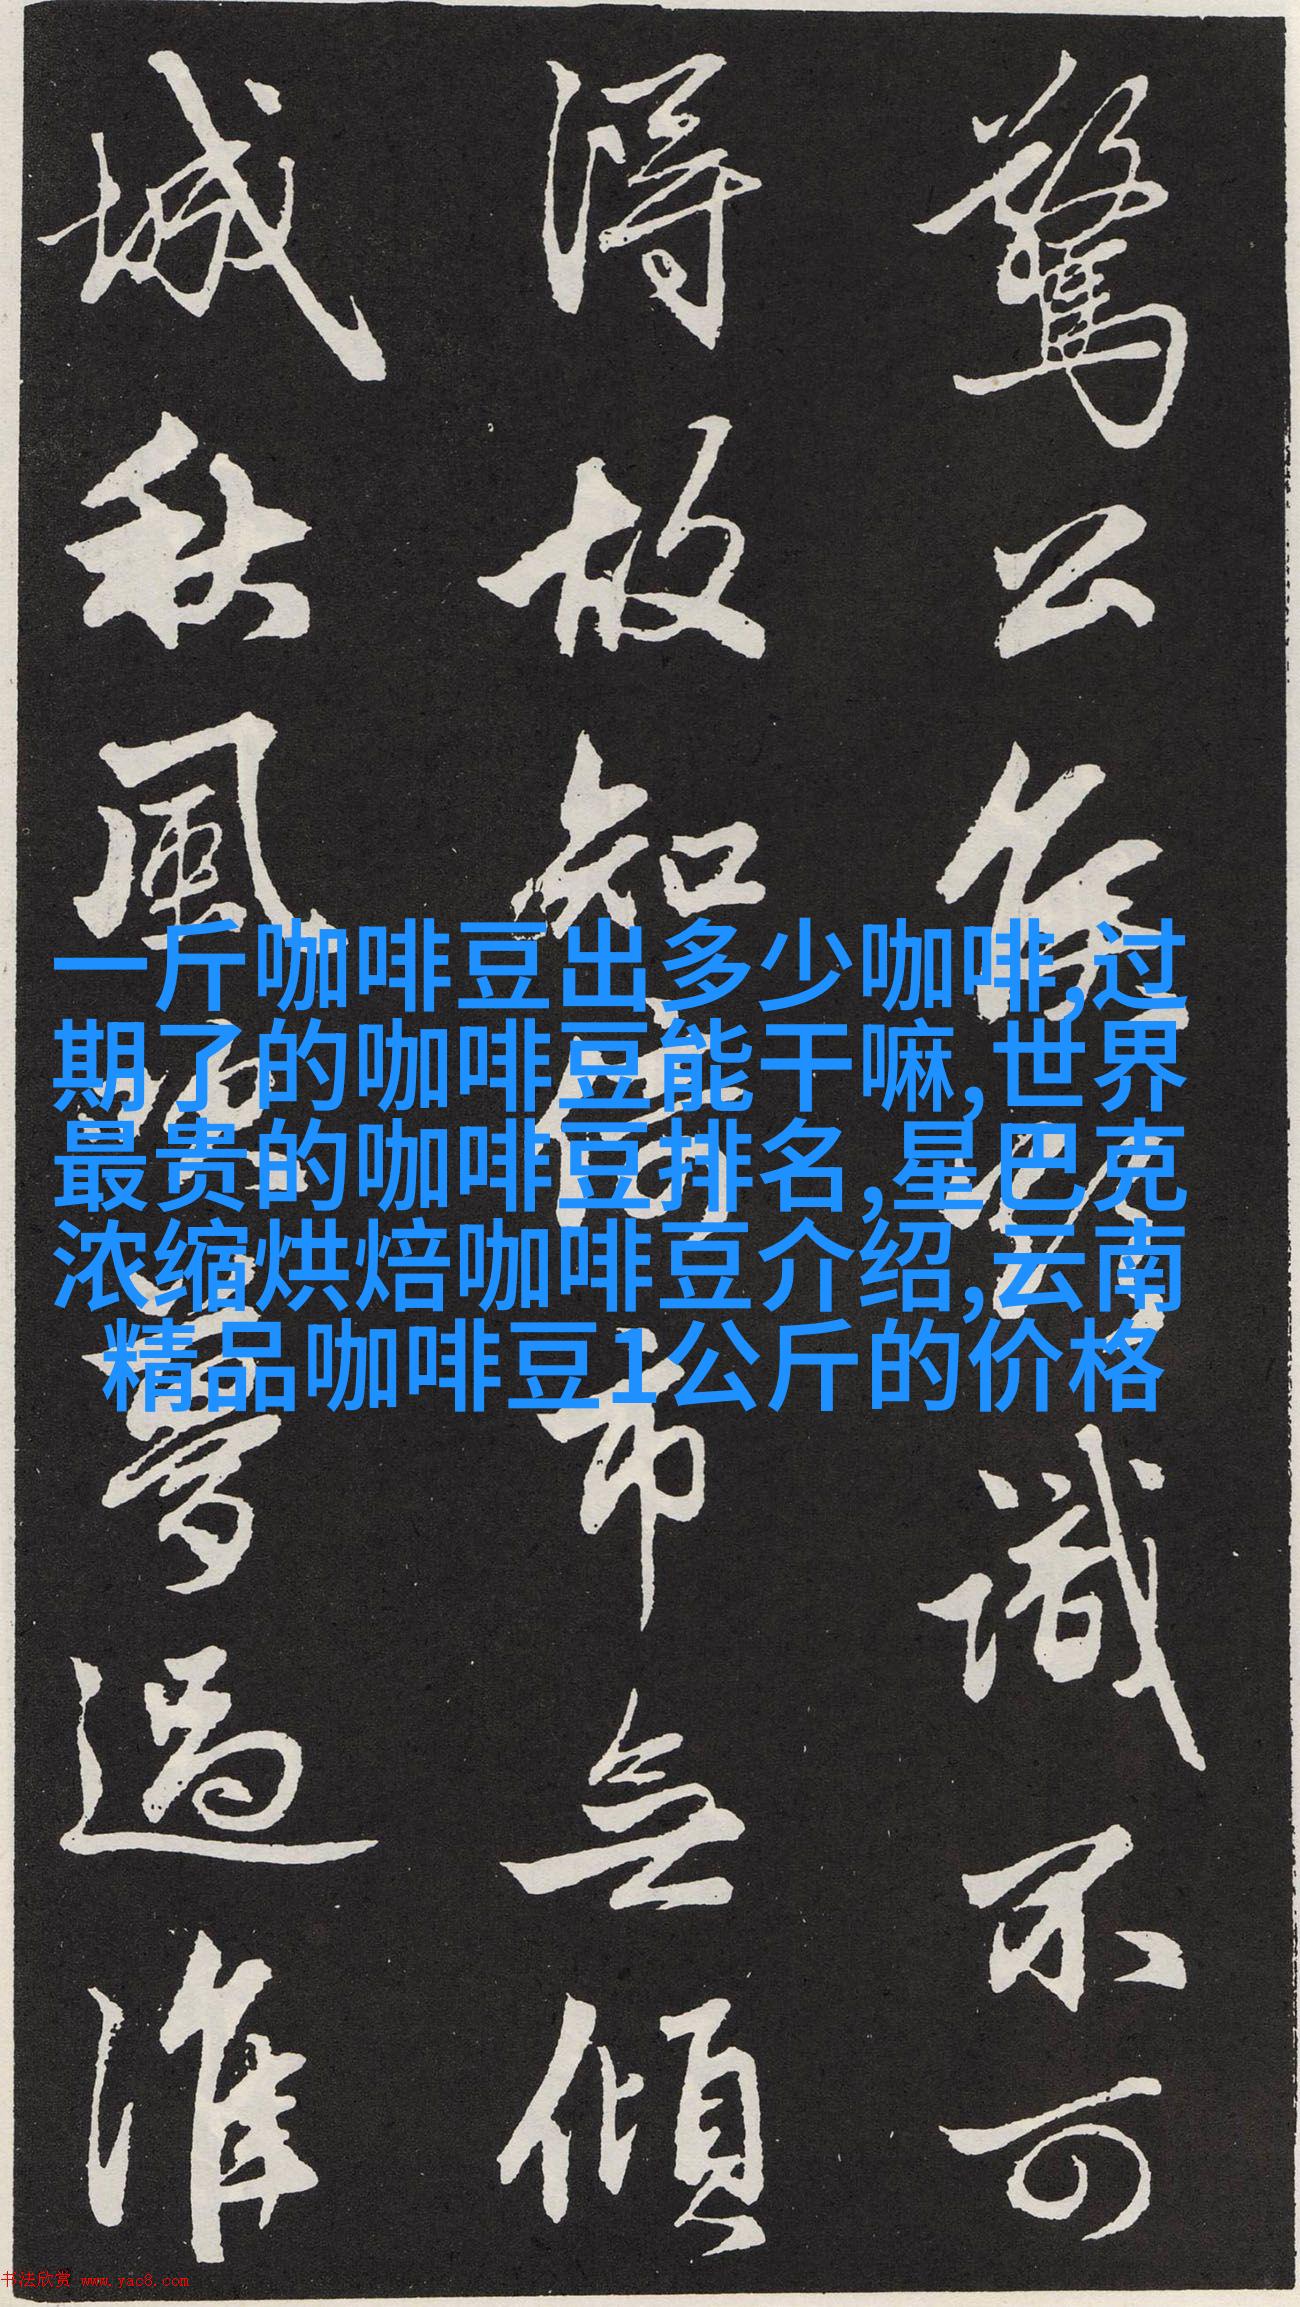 一斤咖啡豆出多少咖啡,过
期了的咖啡豆能干嘛,世界
最贵的咖啡豆排名,星巴克
浓缩烘焙咖啡豆介绍,云南
精品咖啡豆1公斤的价格
驚公識不可
得故知市無傾
城秋風夢過淮
书法欣赏 www.yac8.com